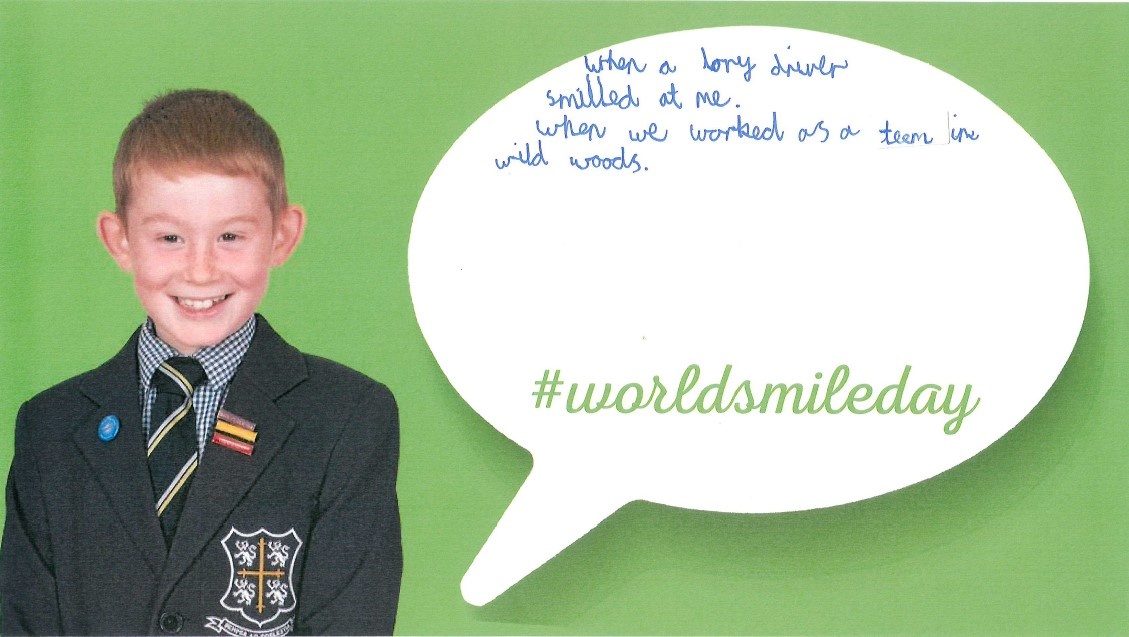 when a lory driver
smilled at me.
when we worked as a team in
wild woods.
#worldsmileday